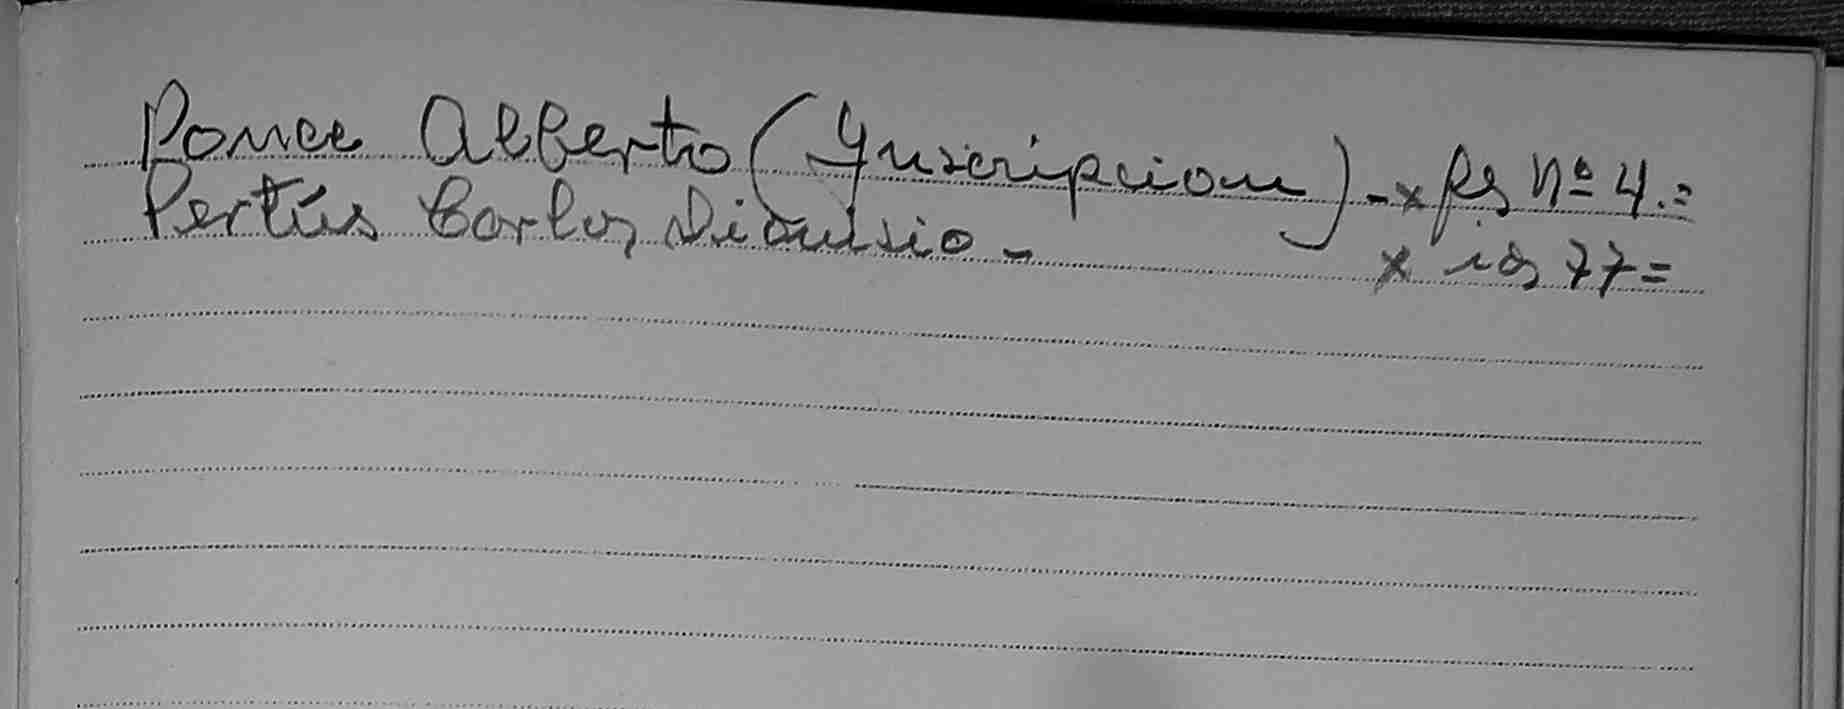 Ponce Alberto (Ynscripcion) - x fs nº 4.=
Pertús Carlos Dionisio - x id 77=